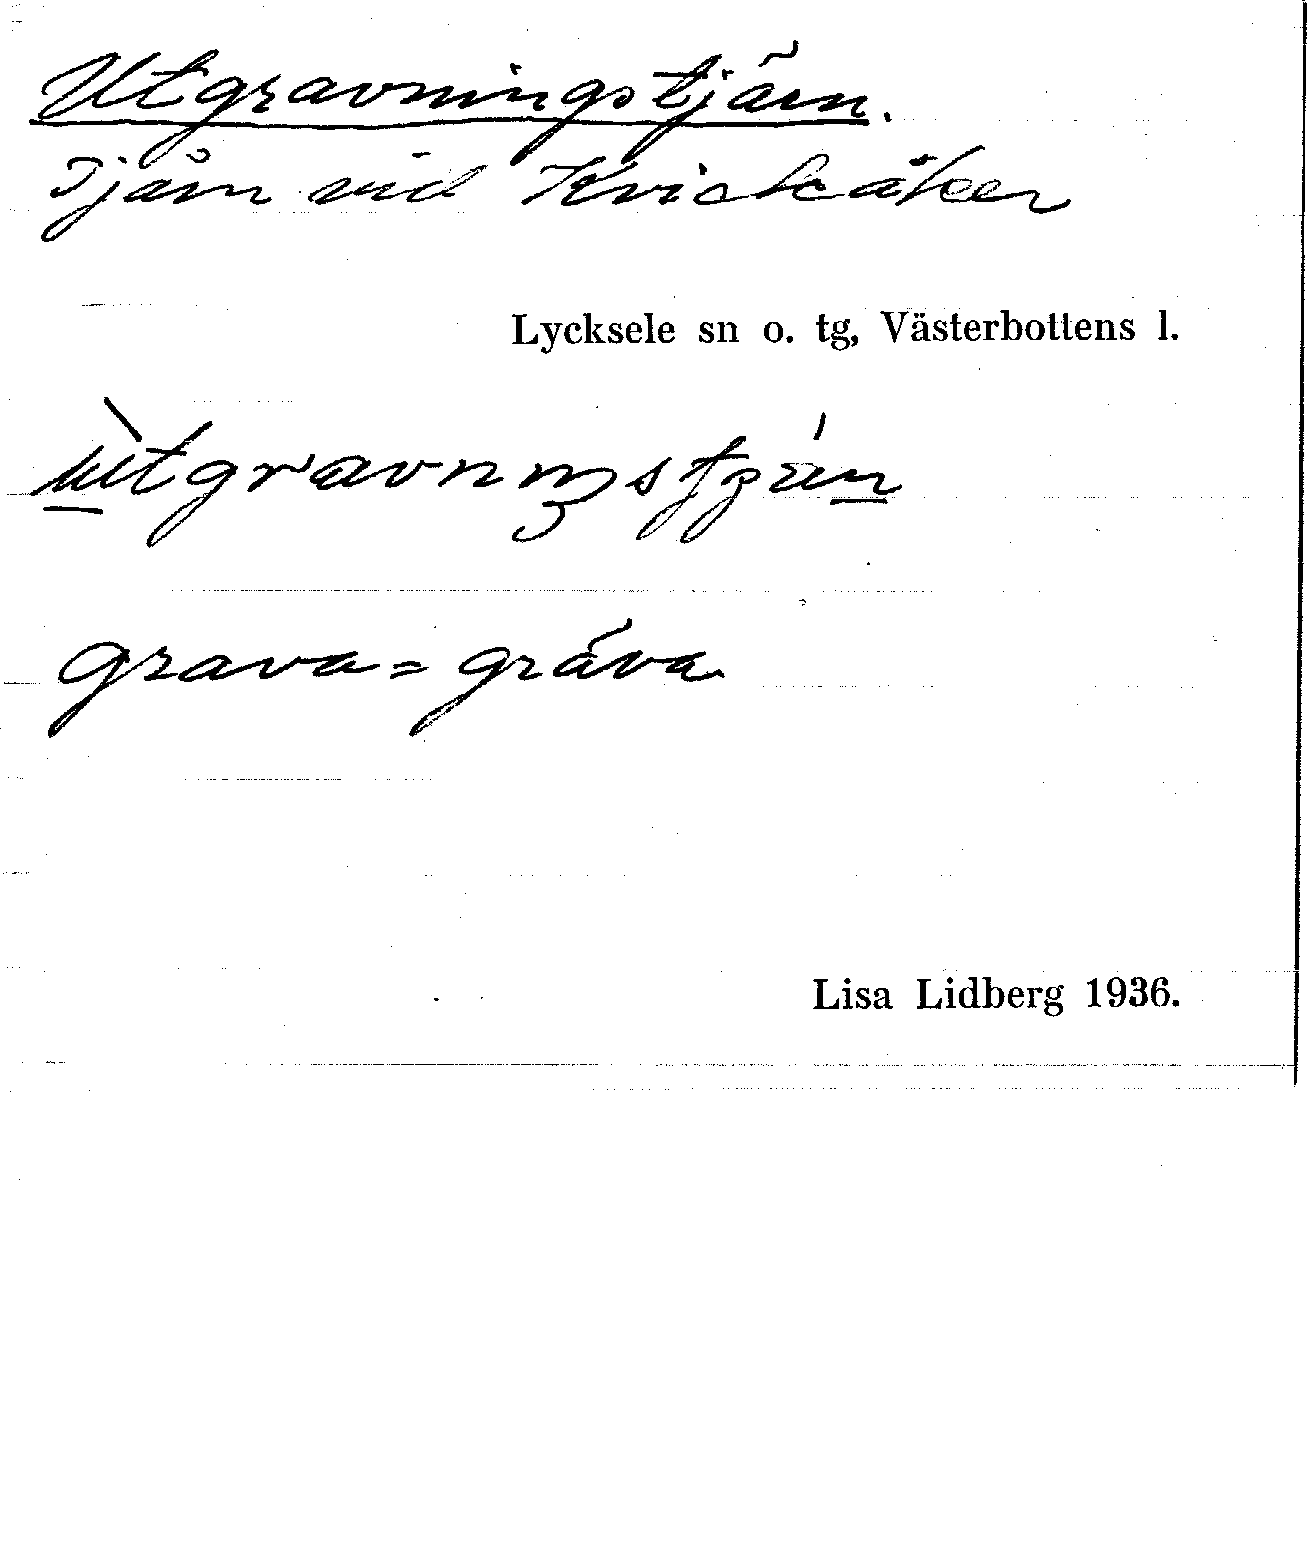 Utgravningstjärn.
Tjärn vid Kvickåker
Lycksele sn o. tg, Västerbottens l.
grava = gräva
Lisa Lidberg 1936.